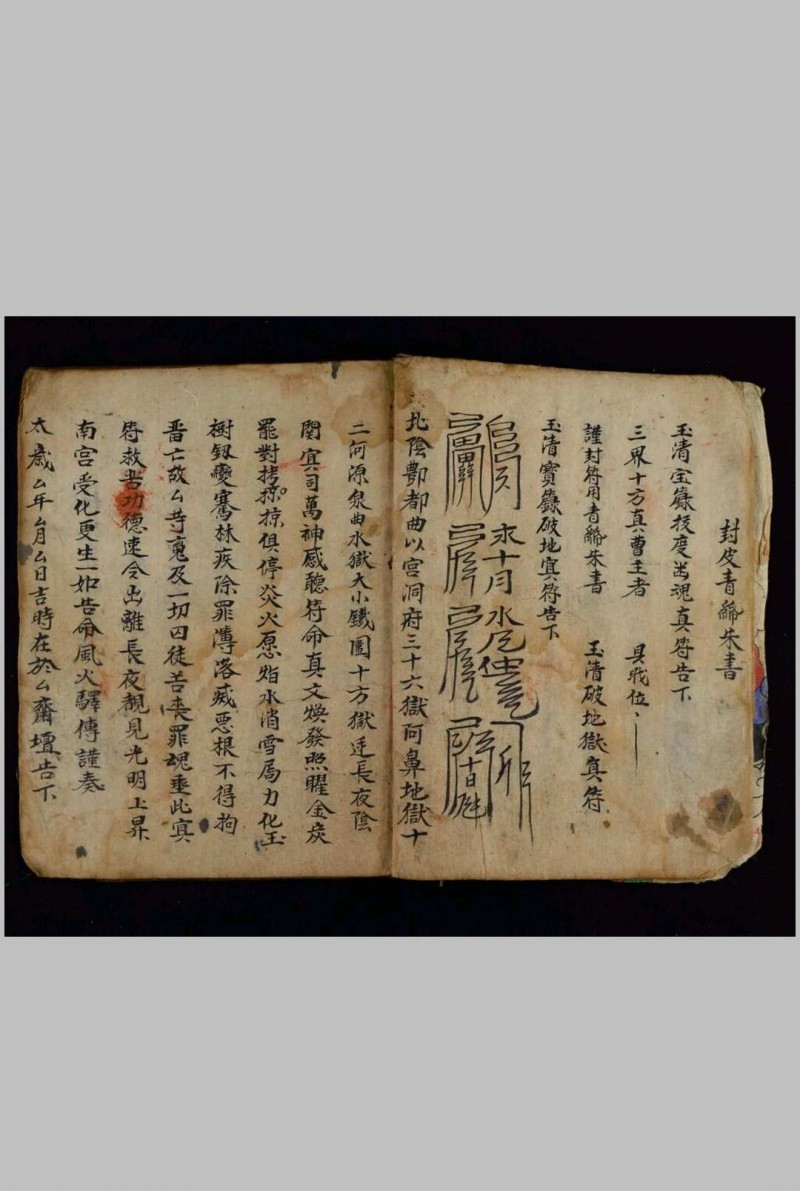 封皮青絲朱書
玉清宝籙拔度出魂真符告下
三界十方真曹王者 具戝位
謹封符用青絲朱書 玉清破地獄真符
玉清寳籙破地冥符告下
北陰酆都曲以宮洞府三十六獄阿鼻地獄十
二河源泉曲水獄大小鐵圍十方獄迋長夜陰
関冥司萬神咸聽符命真文煥發照曜金炭
罷對拷掠掠俱停炎火愿始水消雪局力化玉
樹釼變騫林疾除罪薄落滅悪根不得拘
晋亡故厶等䰟及一切囚徒苦喪罪魂垂此冥
符救苦功德速令出離長夜覩見光明上昇
南宮受化更生一如告命風火驛傳謹奏
太歲厶年厶月厶日吉時在於厶齋壇告下